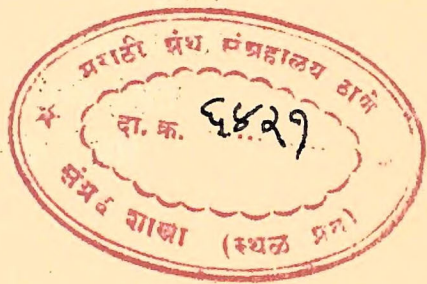 मराठी ग्रंथ संग्रहालय ठाणे
दा. क्र. ६४२१
संग्रह शाखा (स्थळ प्रत)